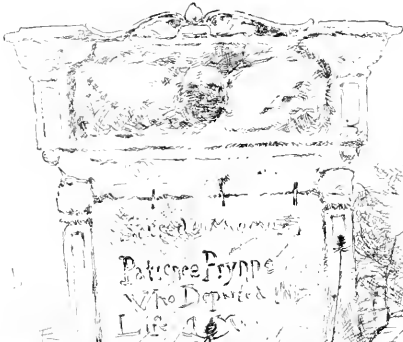 Sacred to Memory
Patience Prynne
Who Departed this
Life